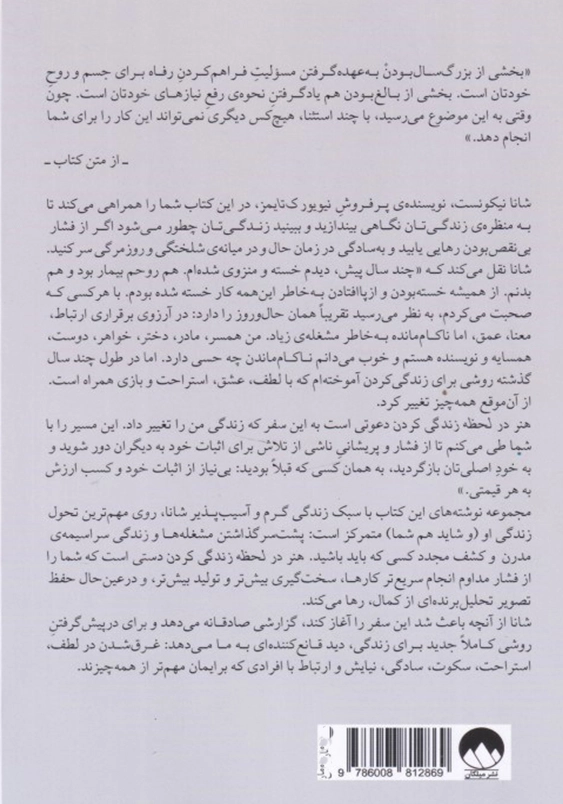 «بخشی از بزرگ‌سال‌بودنْ به‌عهده‌گرفتن مسؤلیتِ فراهم‌کردنِ رفاه برای جسم و روحِ
خودتان است. بخشی از بالغ‌بودن هم یادگرفتنِ نحوه‌ی رفعِ نیازهای خودتان است. چون
وقتی به این موضوع می‌رسید، با چند استثنا، هیچ‌کس دیگری نمی‌تواند این کار را برای شما
انجام دهد.»
ـ از متن کتاب ـ
شانا نیکونست، نویسنده‌ی پرفروشِ نیویورک‌تایمز، در این کتاب شما را همراهی می‌کند تا
به منظره‌ی زندگی‌تان نگاهی بیندازید و ببینید زندگی‌تان چطور می‌شود اگر از فشار
بی‌نقص‌بودن رهایی یابید و به‌سادگی در زمان حال و در میانه‌ی شلختگی و روزمرگی سر کنید.
شانا نقل می‌کند که «چند سال پیش، دیدم خسته و منزوی شده‌ام. هم روحم بیمار بود و هم
بدنم. از همیشه خسته‌بودن و ازپاافتادن به‌خاطر این‌همه کار خسته شده بودم. با هرکسی که
صحبت می‌کردم، به نظر می‌رسید تقریباً همان حال‌وروز را دارد: در آرزوی برقراری ارتباط،
معنا، عمق، اما ناکام‌مانده به‌خاطر مشغله‌ی زیاد. من همسر، مادر، دختر، خواهر، دوست،
همسایه و نویسنده هستم و خوب می‌دانم ناکام‌ماندن چه حسی دارد. اما در طول چند سال
گذشته روشی برای زندگی‌کردن آموخته‌ام که با لطف، عشق، استراحت و بازی همراه است.
از آن‌موقع همه‌چیز تغییر کرد.
هنر در لحظه زندگی کردن دعوتی است به این سفر که زندگی من را تغییر داد. این مسیر را با
شما طی می‌کنم تا از فشار و پریشانیِ ناشی از تلاش برای اثبات خود به دیگران دور شوید و
به خودِ اصلی‌تان بازگردید، به همان کسی که قبلاً بودید: بی‌نیاز از اثبات خود و کسب ارزش
به هر قیمتی.»
مجموعه نوشته‌های این کتاب با سبک زندگی گرم و آسیب‌پذیر شانا، روی مهم‌ترین تحول
زندگی او (و شاید هم شما) متمرکز است: پشت‌سرگذاشتن مشغله‌ها و زندگی سراسیمه‌ی
مدرن و کشف مجدد کسی که باید باشید. هنر در لحظه زندگی کردن دستی است که شما را
از فشار مداوم انجام سریع‌تر کارها، سخت‌گیری بیش‌تر و تولید بیش‌تر، و درعین‌حال حفظ
تصویر تحلیل‌برنده‌ای از کمال، رها می‌کند.
شانا از آنچه باعث شد این سفر را آغاز کند، گزارشی صادقانه می‌دهد و برای درپیش‌گرفتنِ
روشی کاملاً جدید برای زندگی، دید قانع‌کننده‌ای به ما می‌دهد: غرق‌شدن در لطف،
استراحت، سکوت، سادگی، نیایش و ارتباط با افرادی که برایمان مهم‌تر از همه‌چیزند.
9 786008 812869
نشر میلکان